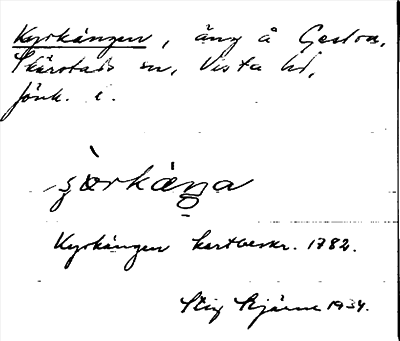 Kyrkängen, äng å Gedva,
Skärstads sn, Vista hd,
Jönk. l.
Kyrkängen kartbeskr. 1782.
Stig Bjärne 1934.